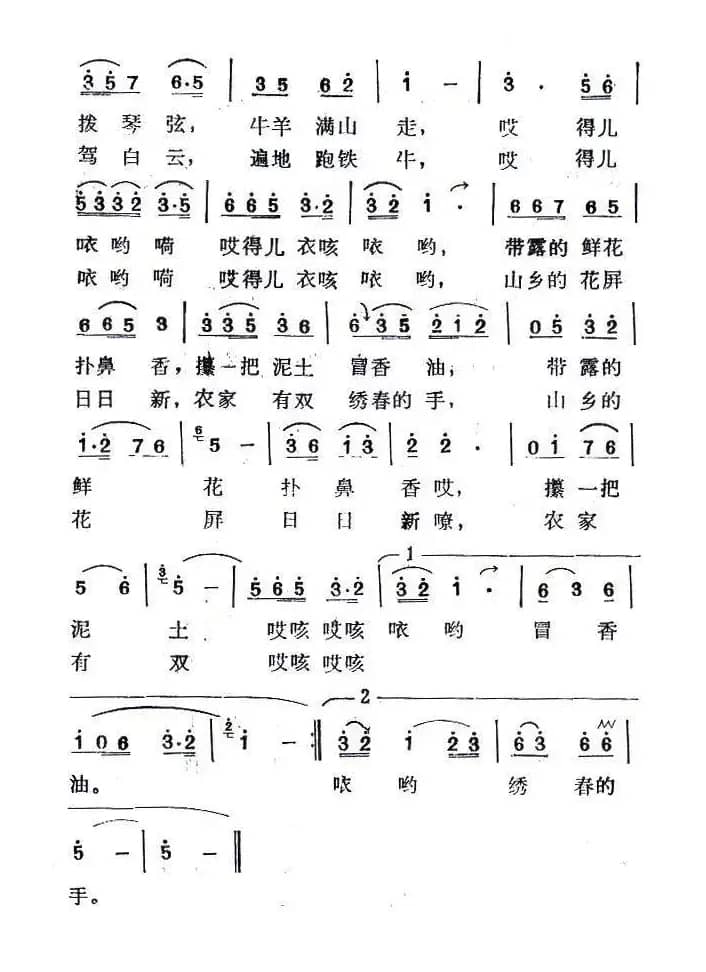 3 5 7 6·5 | 3 5 6 2 | 1 – | 3 · 5 6 |
拨琴弦，牛羊满山走，哎得儿
驾白云，遍地跑铁牛，哎得儿
5 3 3 2 3·5 | 6 6 5 3·2 | 3 2 1 · | 6 6 7 6 5 |
哝哟嗬哎得儿衣咳哝哟，带露的鲜花
哝哟嗬哎得儿衣咳哝哟，山乡的花屏
6 6 5 3 | 3 3 5 3 6 | 6 3 5 2 1 2 | 0 5 3 2 |
扑鼻香，攥一把泥土冒香油；带露的
日日新，农家有双绣春的手，山乡的
1·2 7 6 | 6 5 – | 3 6 1 3 | 2 2 · | 0 1 7 6 |
鲜花扑鼻香哎，攥一把
花屏日日新嘹，农家
1
5 6 | 3 5 – | 5 6 5 3·2 | 3 2 1 · | 6 3 6 |
泥土哎咳哎咳哝哟冒香
有双哎咳哎咳
2
1 0 6 3·2 | 2 1 – :| 3 2 1 2 3 | 6 3 6 6 |
油。哝哟绣春的
5 – | 5 – ‖
手。